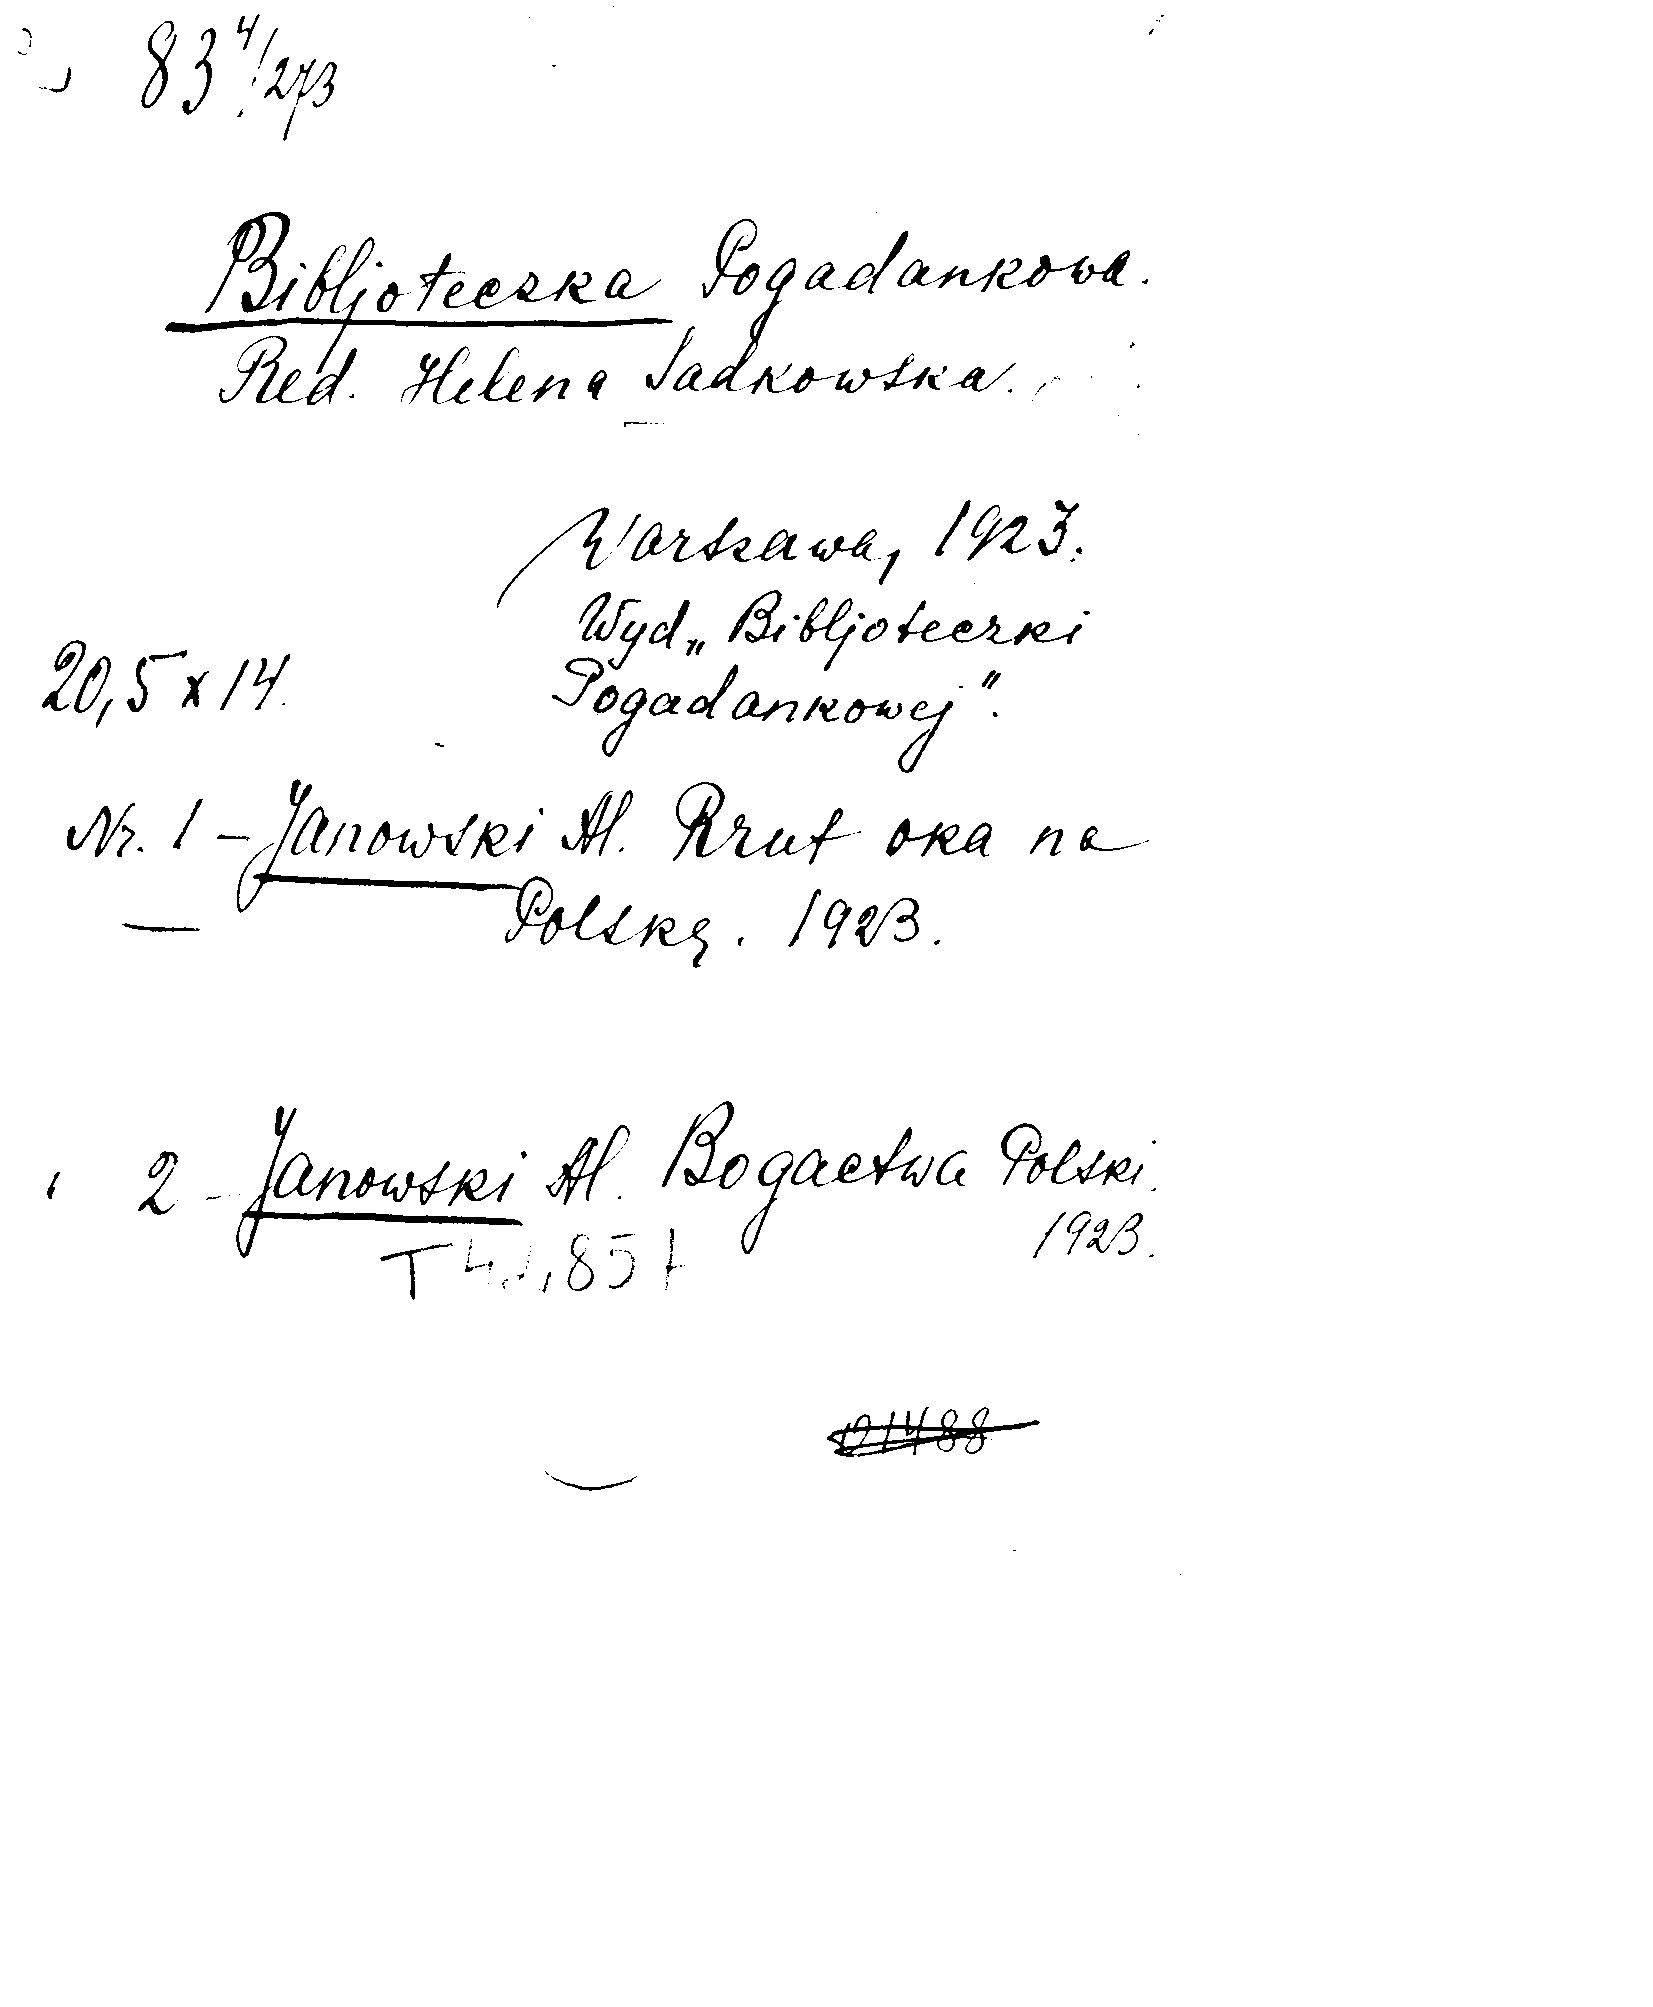 83 4/273
Bibljoteczka Pogadankowa.
Red. Helena Sadkowska.
Warszawa, 1923.
Wyd „Bibljoteczki
20,5 x 14. Pogadankowej".
Nr. 1 – Janowski Al. Rzut oka na
Polskę. 1923.
2 – Janowski Al. Bogactwa Polski.
1923.